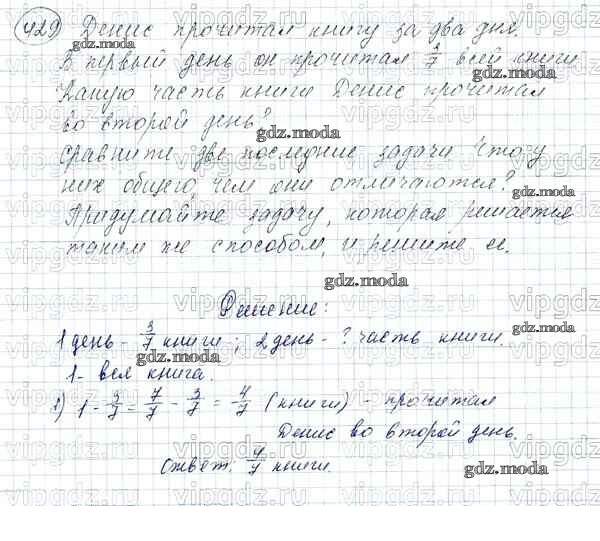 429) Денис прочитал книгу за два дня.
В первый день он прочитал 3/7 всей книги.
Какую часть книги Денис прочитал
во второй день?
Сравните две последние задачи. Что у
них общего, чем они отличаются?
Придумайте задачу, которая решается
таким же способом, и решите ее.
Решение:
1 день - 3/7 книги; 2 день - ? часть книги.
1 - вся книга.
1) 1 - 3/7 = 7/7 - 3/7 = 4/7 (книги) - прочитал
Денис во второй день.
Ответ: 4/7 книги.
gdz.moda
vipgdz.ru